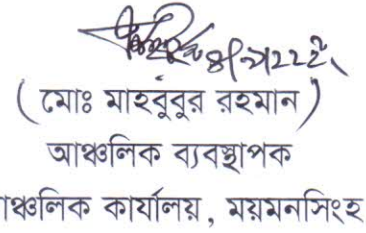 ( মোঃ মাহবুবুর রহমান )
আঞ্চলিক ব্যবস্থাপক
াঞ্চলিক কার্যালয় , ময়মনসিংহ